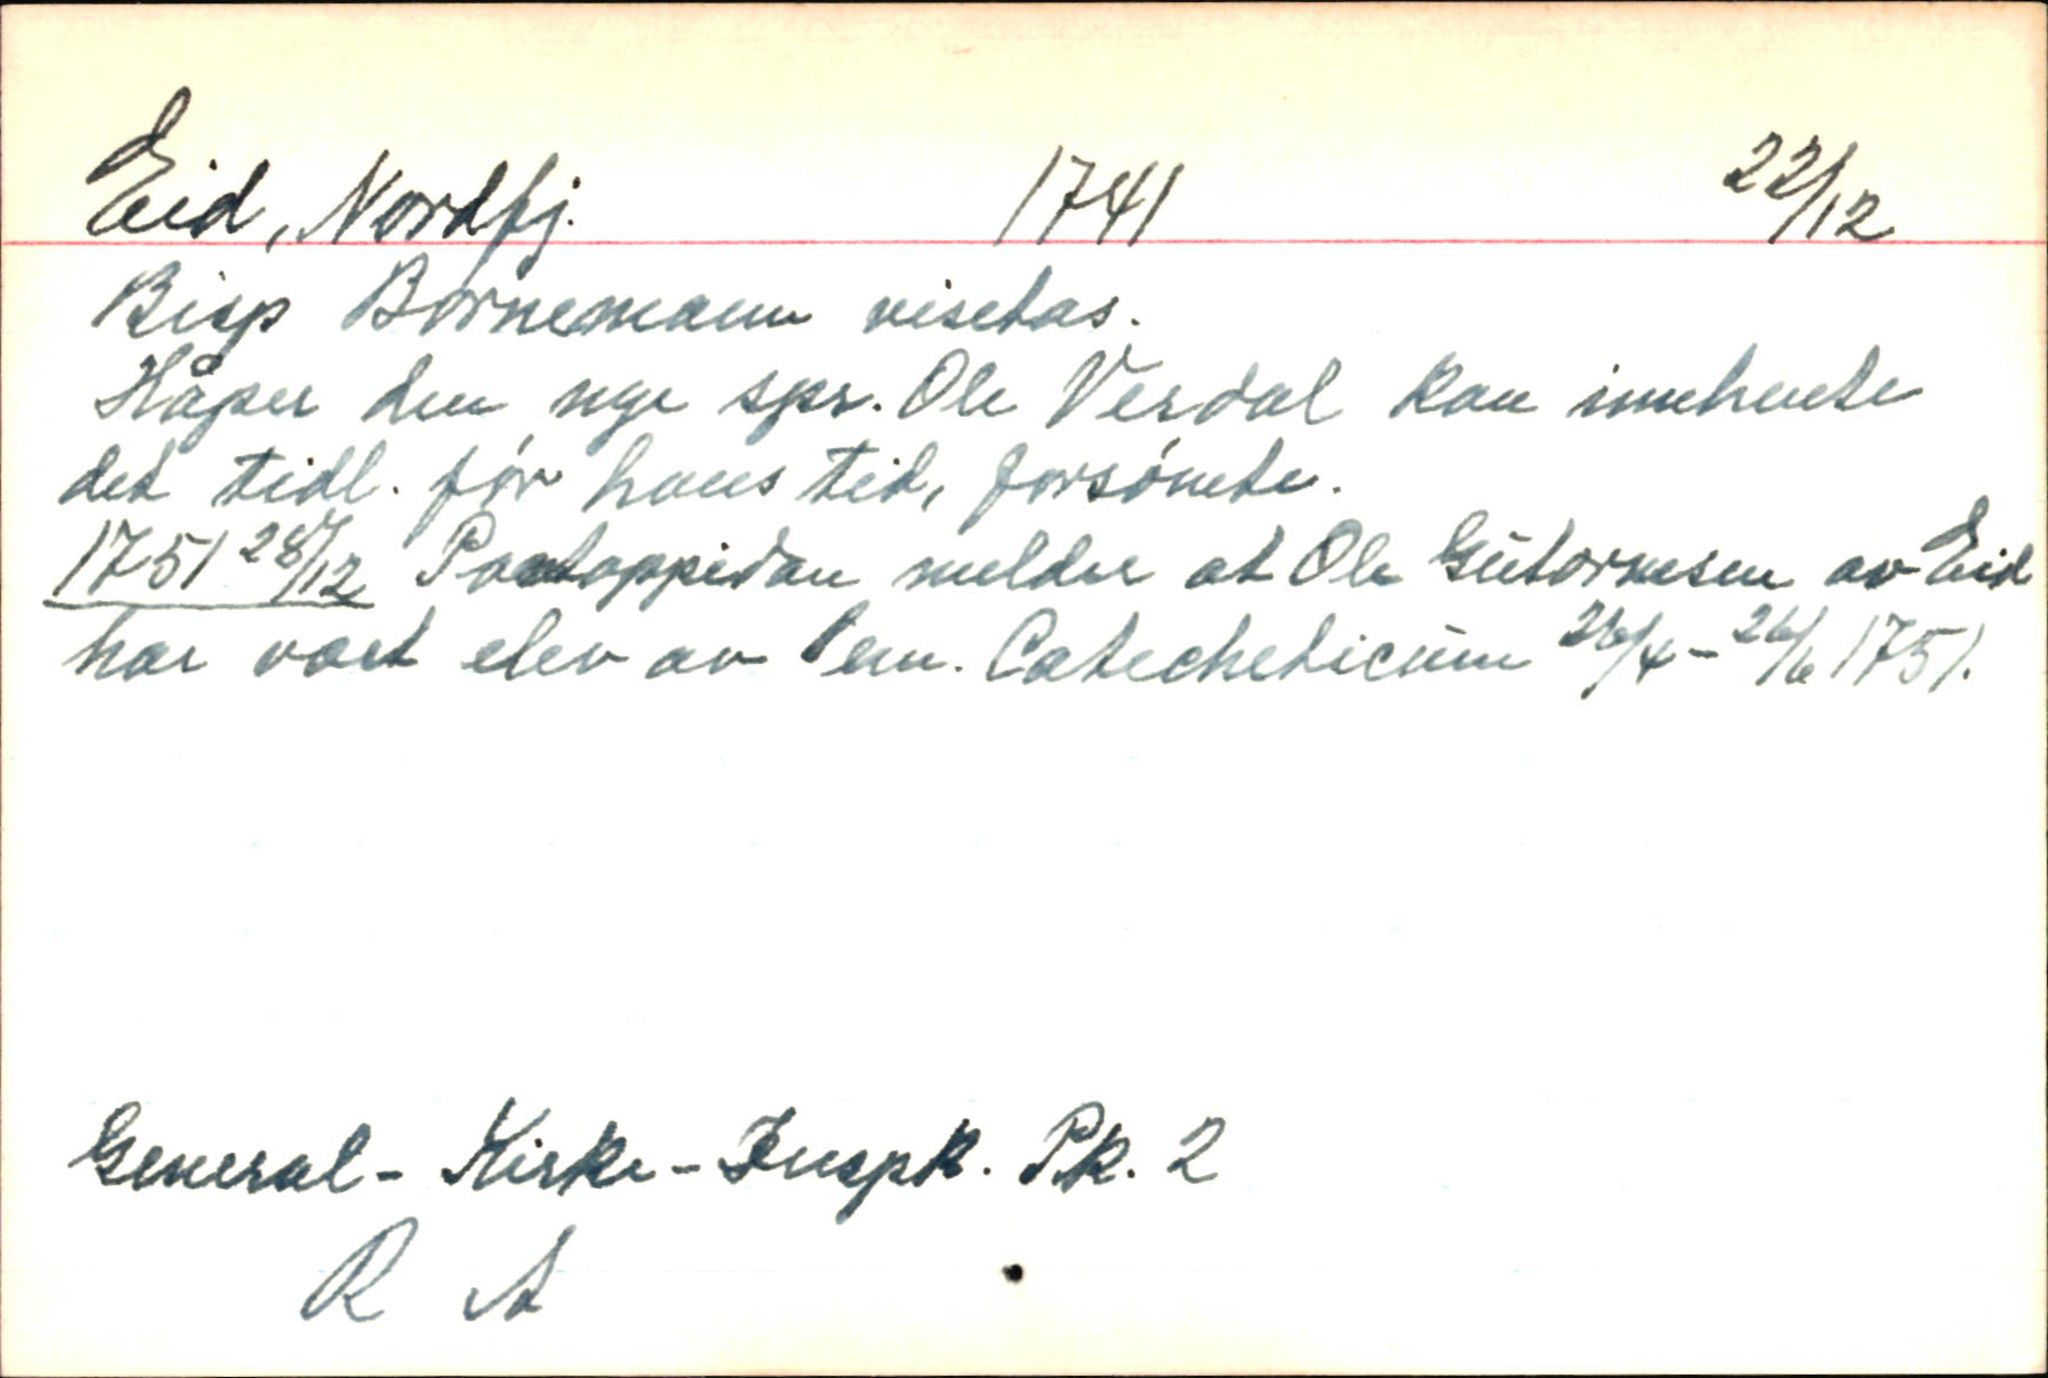 Eid, Nordfj. 1741 22/12
Bisp Bornemann visitas.
Håper den nye spr. Ole Verdal kan innhente
det tidl. før hans tid, forsømte.
1751 28/12 Pontoppidan melder at Ole Gútormsen av Eid
har vært elev av Sem. Catecheticúm 26/4 - 26/6 1751.
General-Kirke-Inspk. Pk. 2
R A